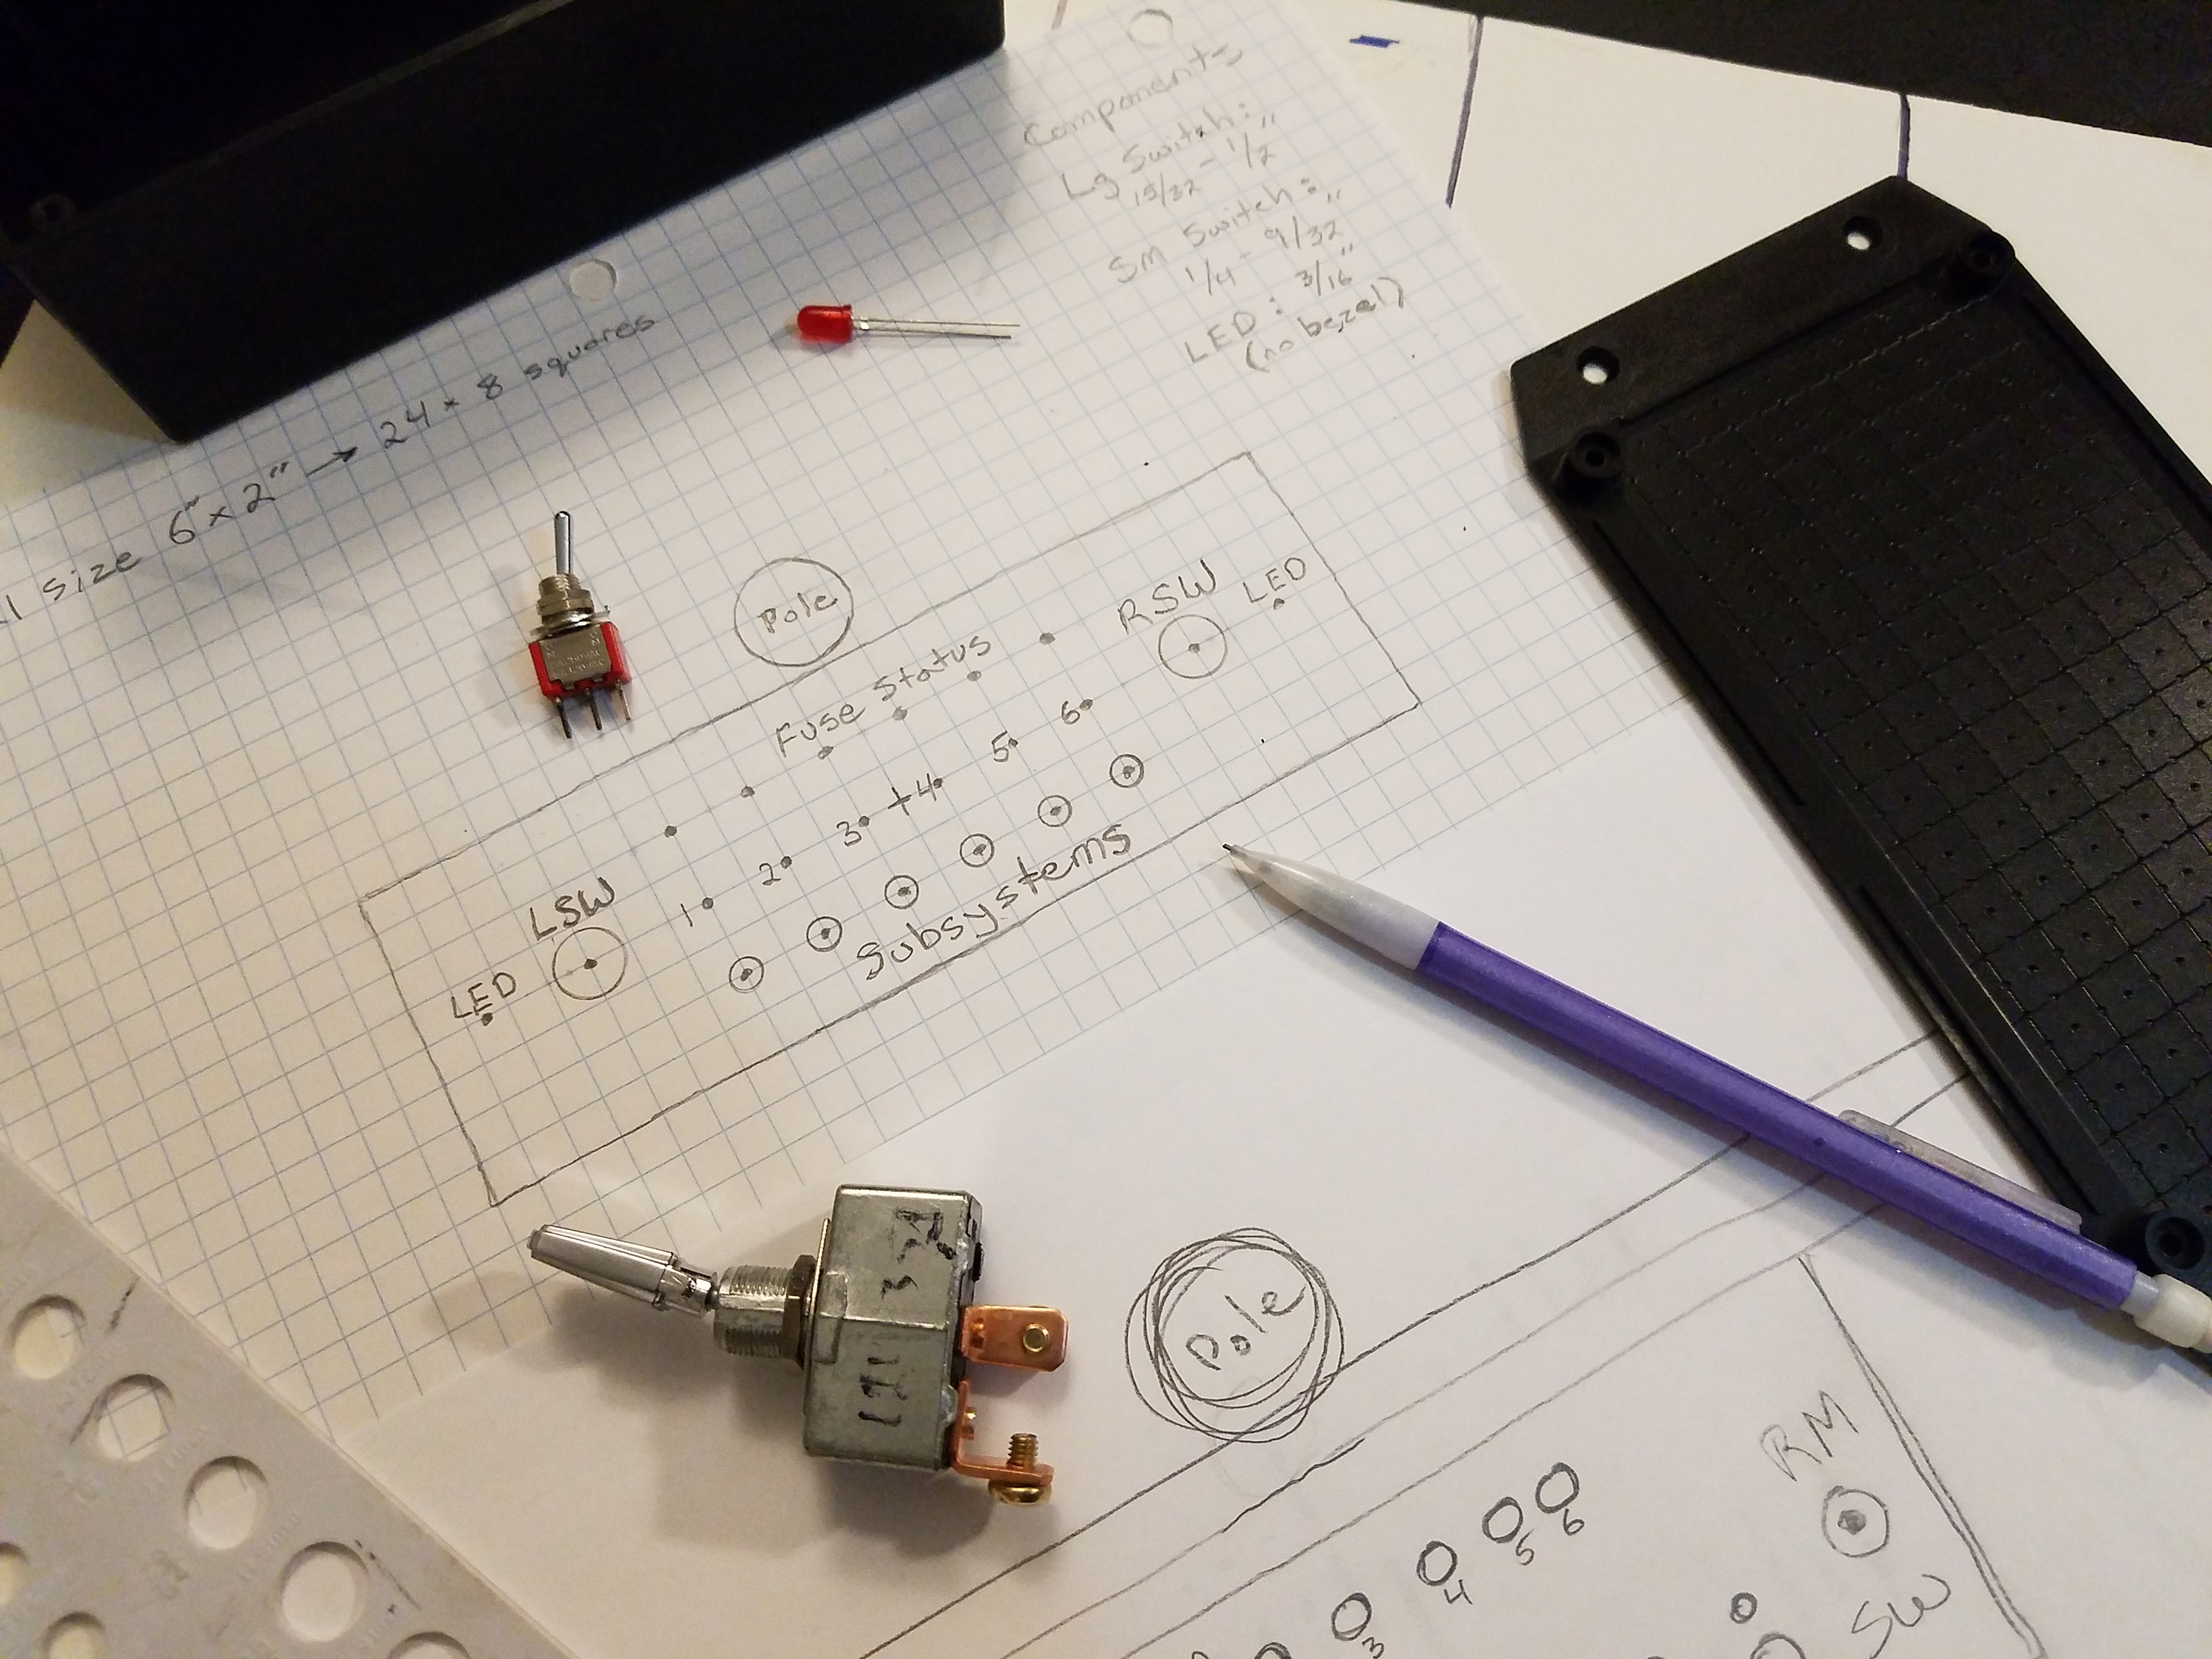 Components
Lg Switch:
15/32 - 1/2"
Sm Switch:
1/4 - 9/32"
LED: 3/16"
(no bezel)
size 6" x 2" → 24 x 8 squares
Pole
Fuse Status
RSW
LED
1 2 3 4 5 6
LSW
LED
Subsystems
Pole
RM
SW
3 4 5 6